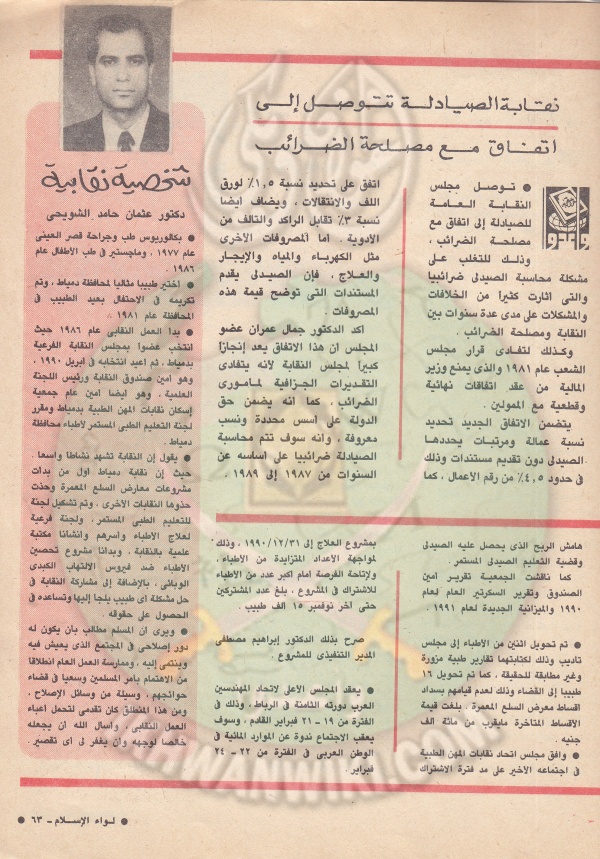 نقابة الصيادلة تتوصل إلى
اتفاق مع مصلحة الضرائب
● توصل مجلس
النقابة العامة
للصيادلة إلى اتفاق مع
مصلحة الضرائب ،
وذلك للتغلب على
مشكلة محاسبة الصيدلى ضرائبيا
والتى أثارت كثيرا من الخلافات
والمشكلات على مدى عدة سنوات بين
النقابة ومصلحة الضرائب .
وكذلك لتفادى قرار مجلس
الشعب عام ١٩٨١ والذى يمنع وزير
المالية من عقد اتفاقات نهائية
وقطعية مع الممولين .
يتضمن الاتفاق الجديد تحديد
نسبة عمالة ومرتبات يحددها
الصيدلى دون تقديم مستندات وذلك
فى حدود ٤,٥٪ من رقم الأعمال ، كما
اتفق على تحديد نسبة ١,٥٪ لورق
اللف والانتقالات ، ويضاف ايضا
نسبة ٣٪ تقابل الراكد والتالف من
الأدوية . أما المصروفات الأخرى
مثل الكهرباء والمياه والإيجار
والعلاج ، فإن الصيدلى يقدم
المستندات التى توضح قيمة هذه
المصروفات .
أكد الدكتور جمال عمران عضو
المجلس أن هذا الاتفاق يعد إنجازاً
كبيراً لمجلس النقابة لأنه يتفادى
التقديرات الجزافية لمامورى
الضرائب ، كما انه يضمن حق
الدولة على أسس محددة ونسب
معروفة ، وأنه سوف تتم محاسبة
الصيادلة ضرائبيا على أساسه عن
السنوات من ١٩٨٧ إلى ١٩٨٩ ،
هامش الربح الذى يحصل عليه الصيدلى
وقضية التعليم الصيدلى المستمر .
كما ناقشت الجمعية تقرير أمين
الصندوق وتقرير السكرتير العام لعام
١٩٩٠ والميزانية الجديدة لعام ١٩٩١ .
● تم تحويل اثنين من الأطباء إلى مجلس
تأديب وذلك لكتابتهما تقارير طبية مزورة
وغير مطابقة للحقيقة ، كما تم تحويل ١٦
طبيبا إلى القضاء وذلك لعدم قيامهم بسداد
أقساط معرض السلع المعمرة . بلغت قيمة
الأقساط المتأخرة مايقرب من مائة ألف
جنيه .
● وافق مجلس اتحاد نقابات المهن الطبية
فى اجتماعه الأخير على مد فترة الاشتراك
بمشروع العلاج إلى ١٩٩٠/١٢/٣١ ، وذلك
لمواجهة الأعداد المتزايدة من الأطباء ،
ولإتاحة الفرصة أمام أكبر عدد من الأطباء
للاشتراك فى المشروع ، بلغ عدد المشتركين
حتى آخر نوفمبر ١٥ الف طبيب .
صرح بذلك الدكتور إبراهيم مصطفى
المدير التنفيذى للمشروع .
● يعقد المجلس الأعلى لاتحاد المهندسين
العرب دورته الثامنة فى الرباط ، وذلك فى
الفترة من ١٩ - ٢١ فبراير القادم ، وسوف
يعقب الاجتماع ندوة عن الموارد المائية فى
الوطن العربى فى الفترة من ٢٢ - ٢٤
فبراير .
شخصية نقابية
دكتور عثمان حامد الشويحى
● بكالوريوس طب وجراحة قصر العينى
عام ١٩٧٧ ، وماجستير فى طب الأطفال عام
١٩٨٦ .
● اختير طبيبا مثاليا لمحافظة دمياط ، وتم
تكريمه فى الاحتفال بعيد الطبيب فى
المحافظة عام ١٩٨١
● بدأ العمل النقابى عام ١٩٨٦ حيث
انتخب عضوا بمجلس النقابة الفرعية
بدمياط ، ثم أعيد انتخابه فى ابريل ١٩٩٠ ،
وهو أمين صندوق النقابة ورئيس اللجنة
العلمية ، وهو ايضا أمين عام جمعية
إسكان نقابات المهن الطبية بدمياط ومقرر
لجنة التعليم الطبى المستمر لأطباء محافظة
دمياط .
● يقول إن النقابة تشهد نشاطا واسعا ،
حيث إن نقابة دمياط اول من بدأت
مشروعات معارض السلع المعمرة وحذت
حذوها النقابات الأخرى . وتم تشكيل لجنة
للتعليم الطبى المستمر ، ولجنة فرعية
لعلاج الأطباء وأسرهم وأنشأنا مكتبة
علمية بالنقابة ، وبدأنا مشروع تحصين
الأطباء ضد فيروس الالتهاب الكبدى
الوبائى ، بالإضافة إلى مشاركة النقابة فى
حل مشكلة أى طبيب يلجأ إليها وتساعده فى
الحصول على حقوقه .
● ويرى أن المسلم مطالب بأن يكون له
دور إصلاحى فى المجتمع الذى يعيش فيه
وينتمى إليه ، وممارسة العمل العام انطلاقا
من الاهتمام بأمر المسلمين وسعيا فى قضاء
حوائجهم ، وسيلة من وسائل الإصلاح ،
ومن هذا المنطلق كان تقدمى لتحمل أعباء
العمل النقابى ، وأسأل الله أن يجعله
خالصا لوجهه وأن يغفر لى أى تقصير .
● لواء الإسلام - ٦٣ ●